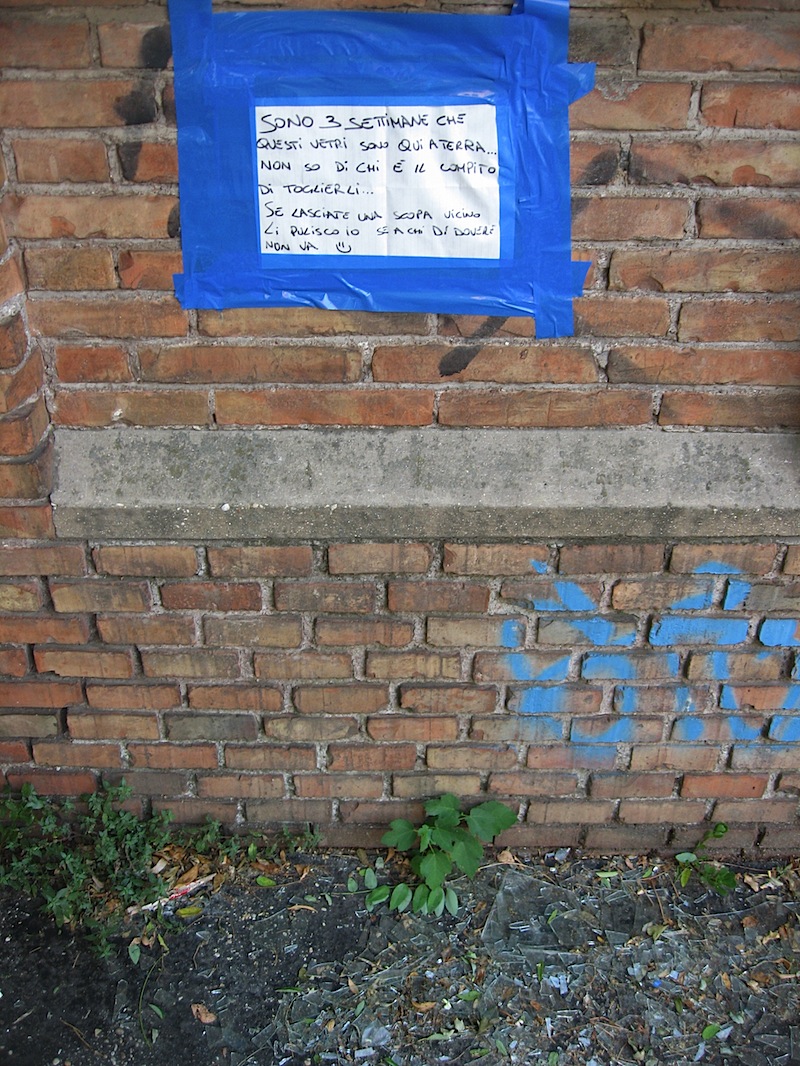 SONO 3 SETTIMANE CHE
QUESTI VETRI SONO QUI A TERRA...
NON SO DI CHI È IL COMPITO
DI TOGLIERLI...
SE LASCIATE UNA SCOPA VICINO
LI PULISCO IO SE A CHI DI DOVERE
NON VA